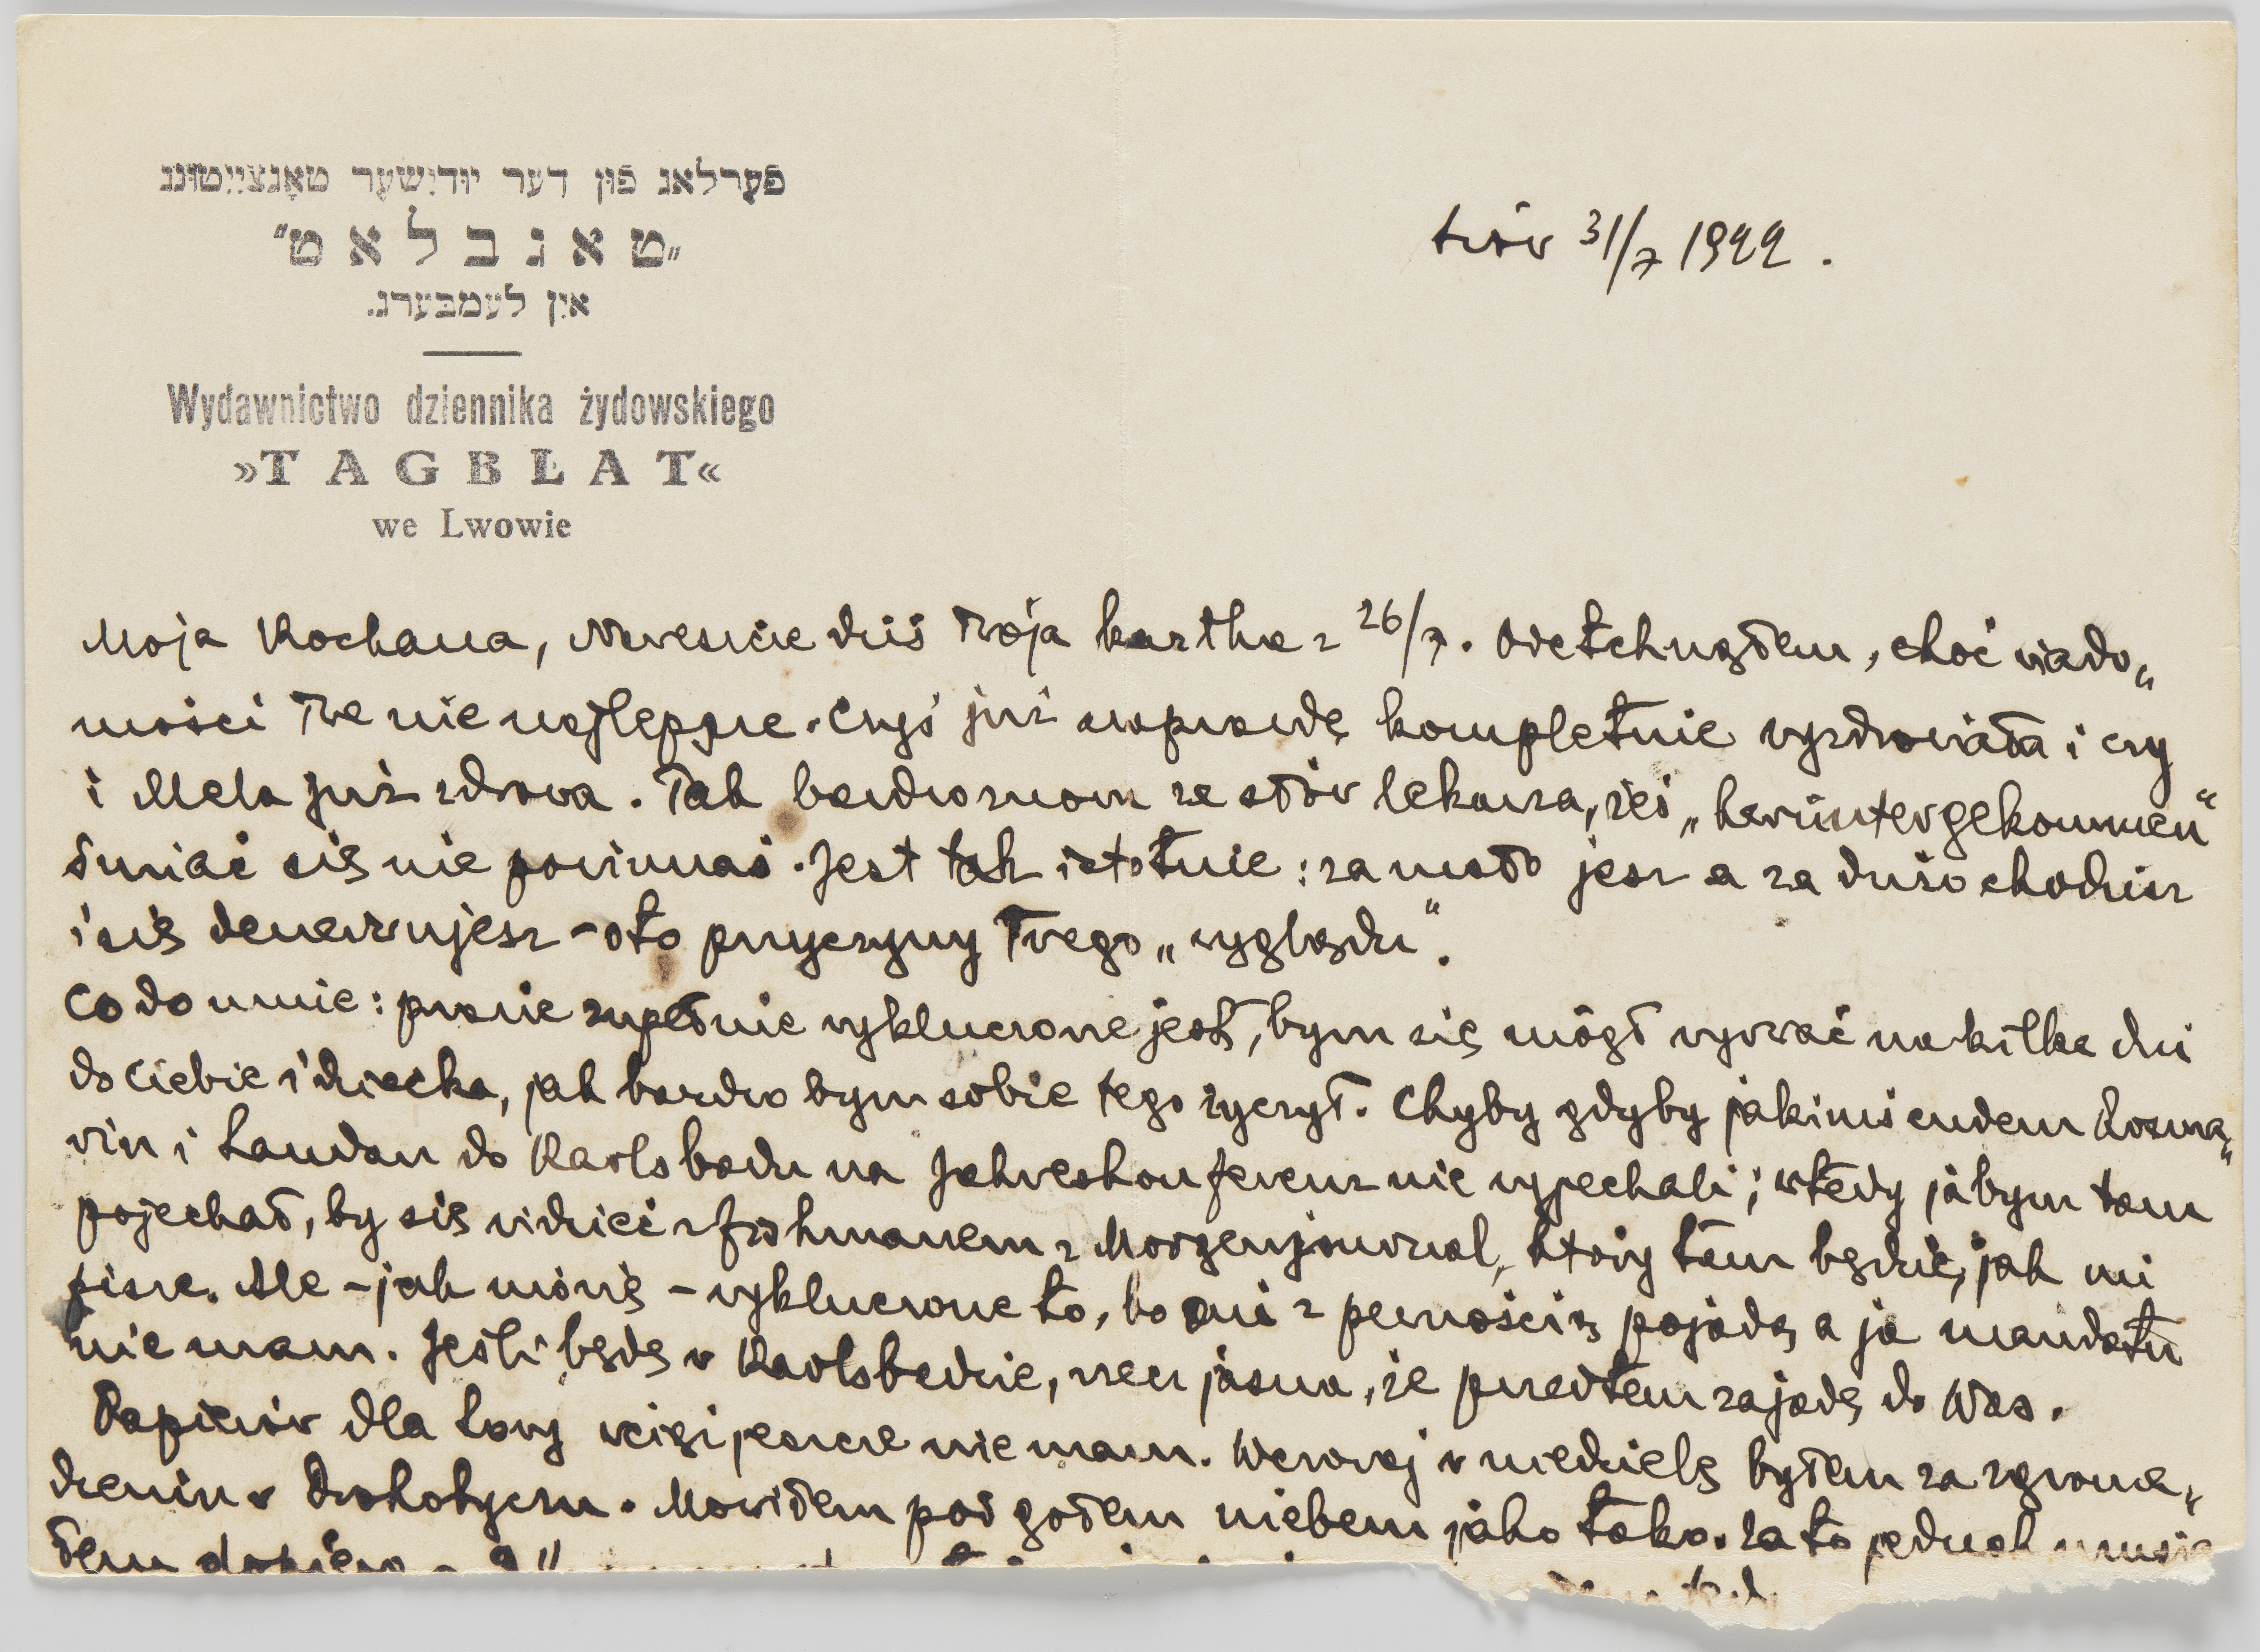 פֿערלאג פֿון דער יודישער טאָגצײַטונג
„טאגבלאט"
אין לעמבערג.
Wydawnictwo dziennika żydowskiego
»TAGBŁAT«
we Lwowie
Lwów 31/7 1922.
Moja Kochana, Nareszcie dziś Twoja kartka z 26/7. Odetchnąłem, choć wiado„
mości Twe nie najlepsze. Czyś już naprawdę kompletnie wyzdrowiała i czy
i Mela już zdrowa. Tak bardzo znowu ze słów lekarza, żeś „heruntergekommen"
śmiać się nie powinnaś. Jest tak istotnie: za mało jesz a za dużo chodzisz
i się denerwujesz – oto przyczyny Twego „wyglądu".
Co do mnie: prawie zupełnie wykluczone jest, bym się mógł wyrwać na kilka dni
do Ciebie i dziecka, jak bardzo bym sobie tego życzył. Chyba gdyby jakimś cudem Rozma„
ryn i Landau do Karlsbadu na Jahreskonferenz nie wyjechali; wtedy ja bym tam
pojechał, by się widzieć z Fishmanem z Morgenjournal, który tam będzie, jak mi
pisze. Ale – jak mówię – wykluczone to, bo oni z pewnością pojadą a ja mandatu
nie mam. Jeśli będę w Karlsbadzie, rzecz jasna, że przedtem zajadę do Was.
Papierów dla Lory wciąż jeszcze nie mam. Wczoraj w niedzielę byłem na zgroma„
dzeniu w Drohobyczu. Mówiłem pod gołem niebem jako tako. Za to jednak musia
łem dopiero